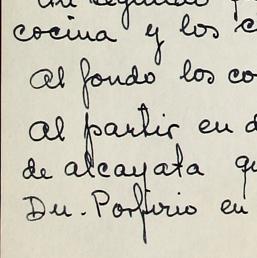 un segundo
cocina y los c
al fondo los co
al partir en d
de alcayata qu
Dn. Porfirio en